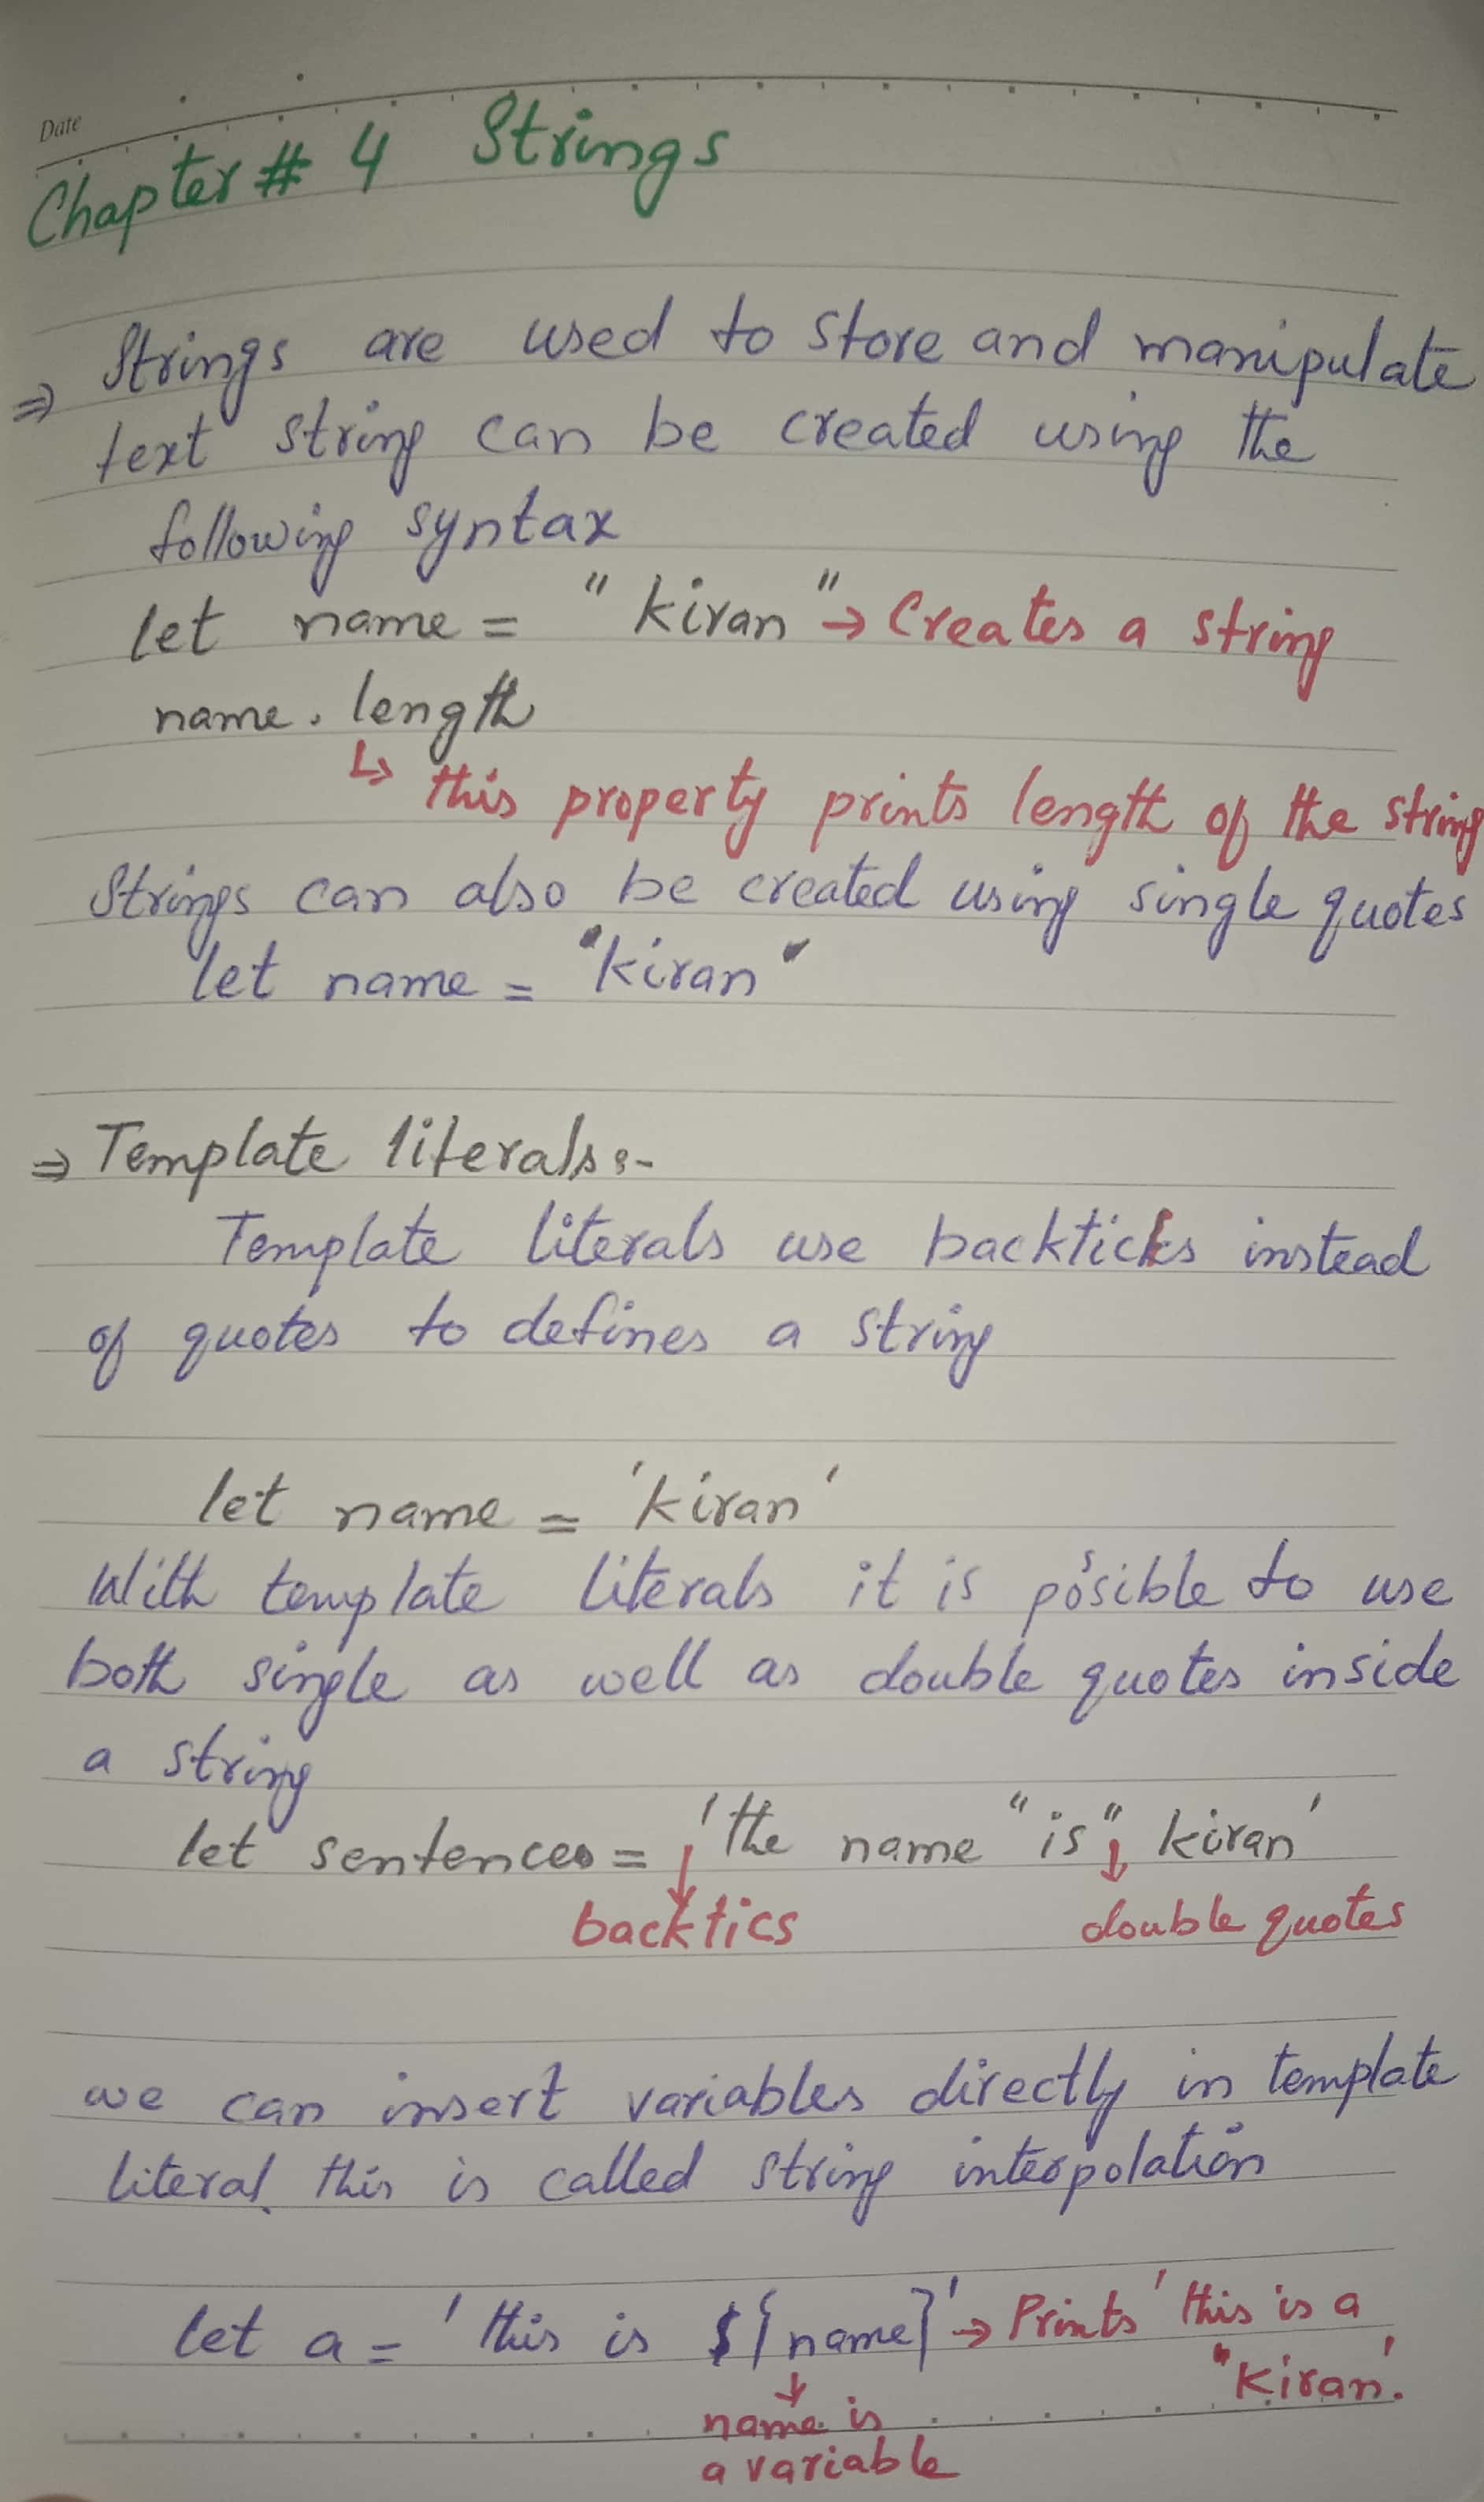 Date
Chapter # 4 Strings
⇒ Strings are used to store and manipulate
text string can be created using the
following syntax
let name = "kiran" → Creates a string
name. length
↳ this property prints length of the string
Strings can also be created using single quotes
let name = "kiran"
⇒ Template literals:-
Template literals use backticks instead
of quotes to defines a string
let name = 'kiran'
With template literals it is possible to use
both single as well as double quotes inside
a string
let sentences = 'the name "is" kiran'
↓ backtics ↓ double quotes
we can insert variables directly in template
literal. this is called string interpolation
let a = 'this is ${name}' → Prints 'this is a
"Kiran'.
↓
name is
a variable